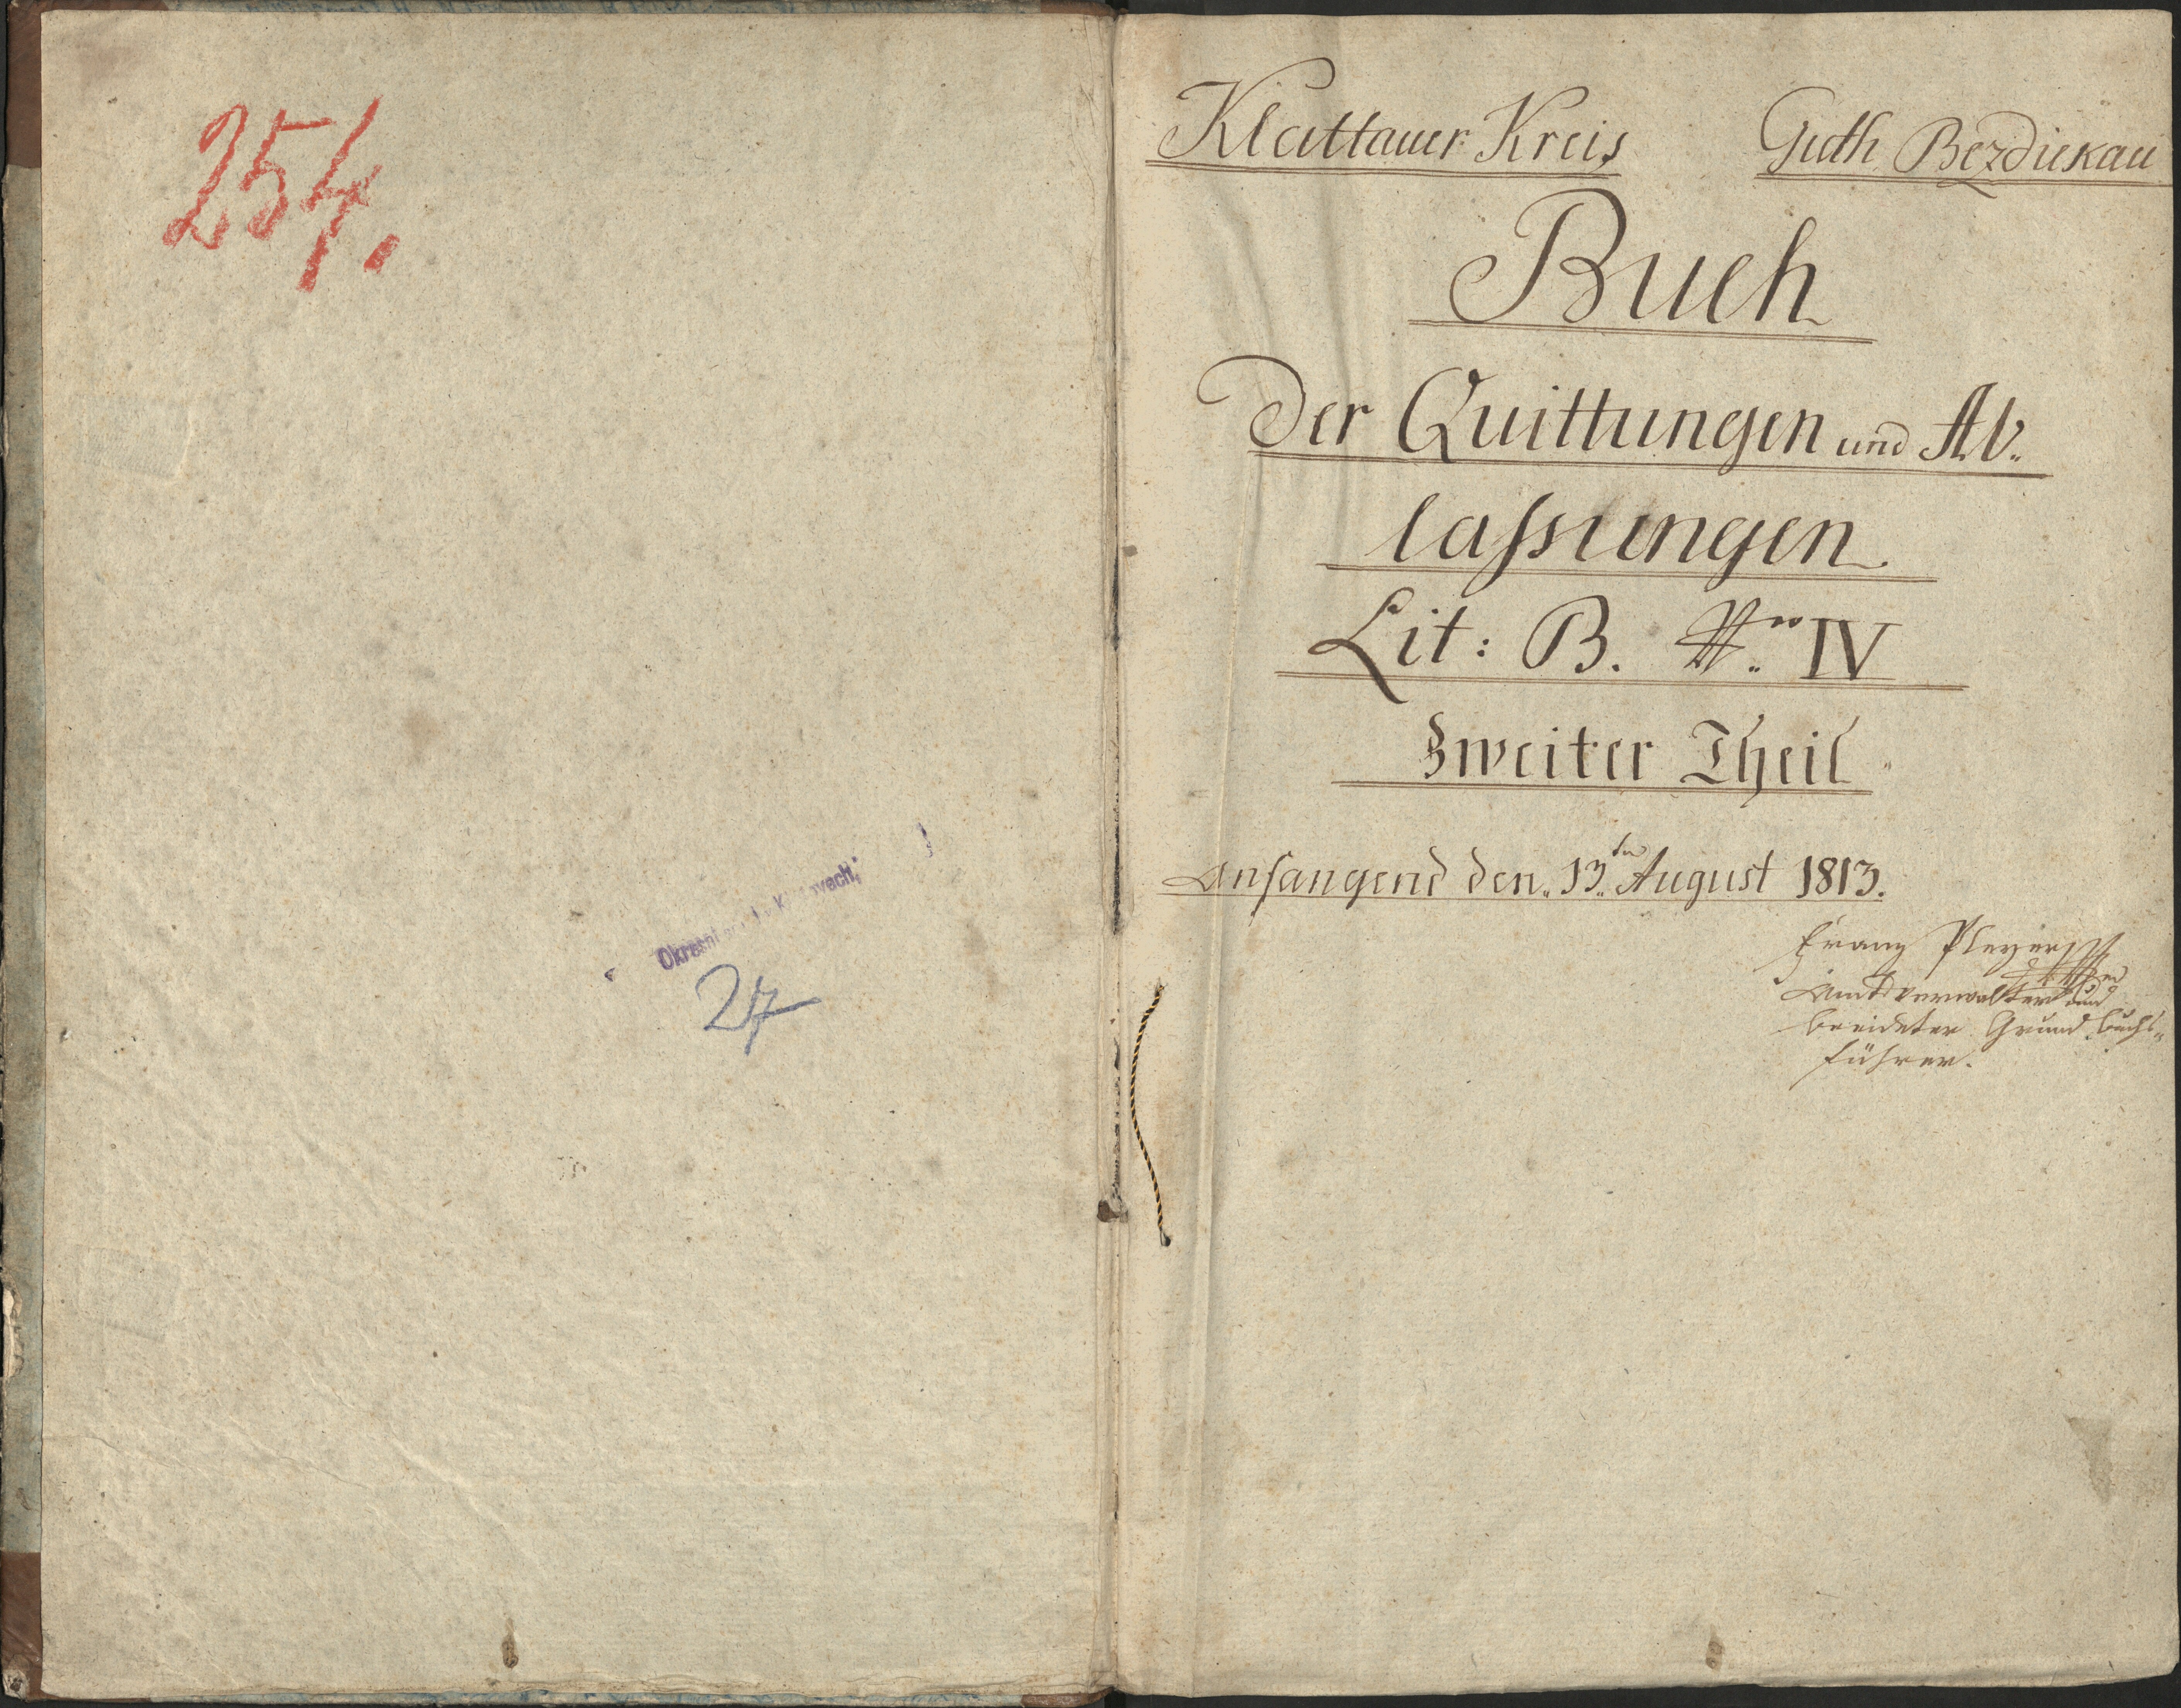 254.
Okresní
27
Klattauer Kreis Guth Bezdiekau
Buch
Der Quittungen und Ab„
lassungen
Lit: B. Nro IV
Zweiter Theil
Anfangend den 13ten August 1813.
Franz Pleyer
Amtsverwalter und
beeideter Grund buchs„
führer.